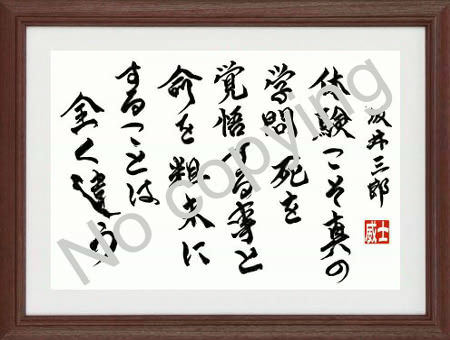 坂井三郎
体験こそ真の
学問 死を
覚悟する事と
命を粗末に
することは
全く違う
威士
No copying